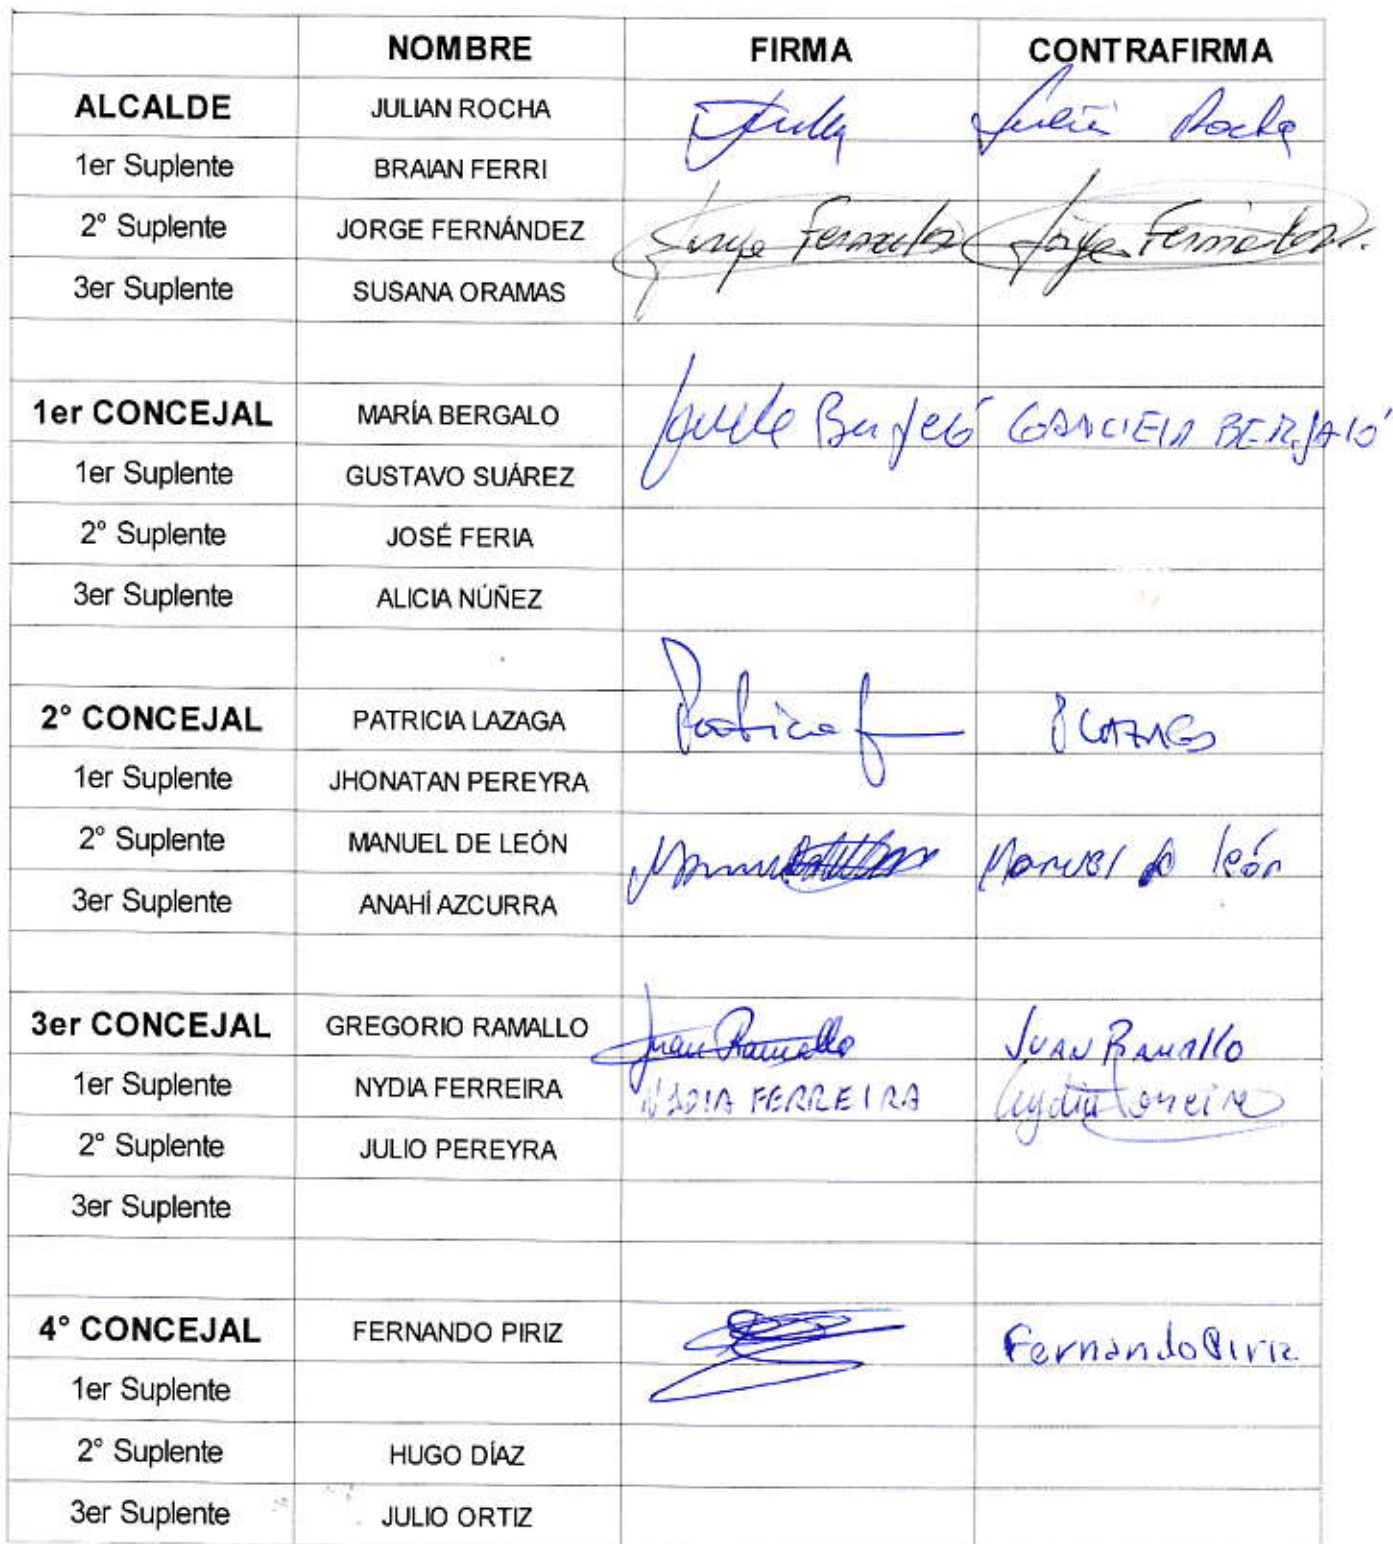 NOMBRE FIRMA CONTRAFIRMA
ALCALDE JULIAN ROCHA Julián Rocha
1er Suplente BRAIAN FERRI
2° Suplente JORGE FERNÁNDEZ Jorge Fernández Jorge Fernández
3er Suplente SUSANA ORAMAS
1er CONCEJAL MARÍA BERGALO GRACIELA BERGALÓ
1er Suplente GUSTAVO SUÁREZ
2° Suplente JOSÉ FERIA
3er Suplente ALICIA NÚÑEZ
2° CONCEJAL PATRICIA LAZAGA Patricia P LAZAGA
1er Suplente JHONATAN PEREYRA
2° Suplente MANUEL DE LEÓN Manuel de león
3er Suplente ANAHÍ AZCURRA
3er CONCEJAL GREGORIO RAMALLO Juan Ramallo JUAN RAMALLO
1er Suplente NYDIA FERREIRA NYDIA FERREIRA Nydia Ferreira
2° Suplente JULIO PEREYRA
3er Suplente
4° CONCEJAL FERNANDO PIRIZ Fernando Piriz
1er Suplente
2° Suplente HUGO DÍAZ
3er Suplente JULIO ORTIZ